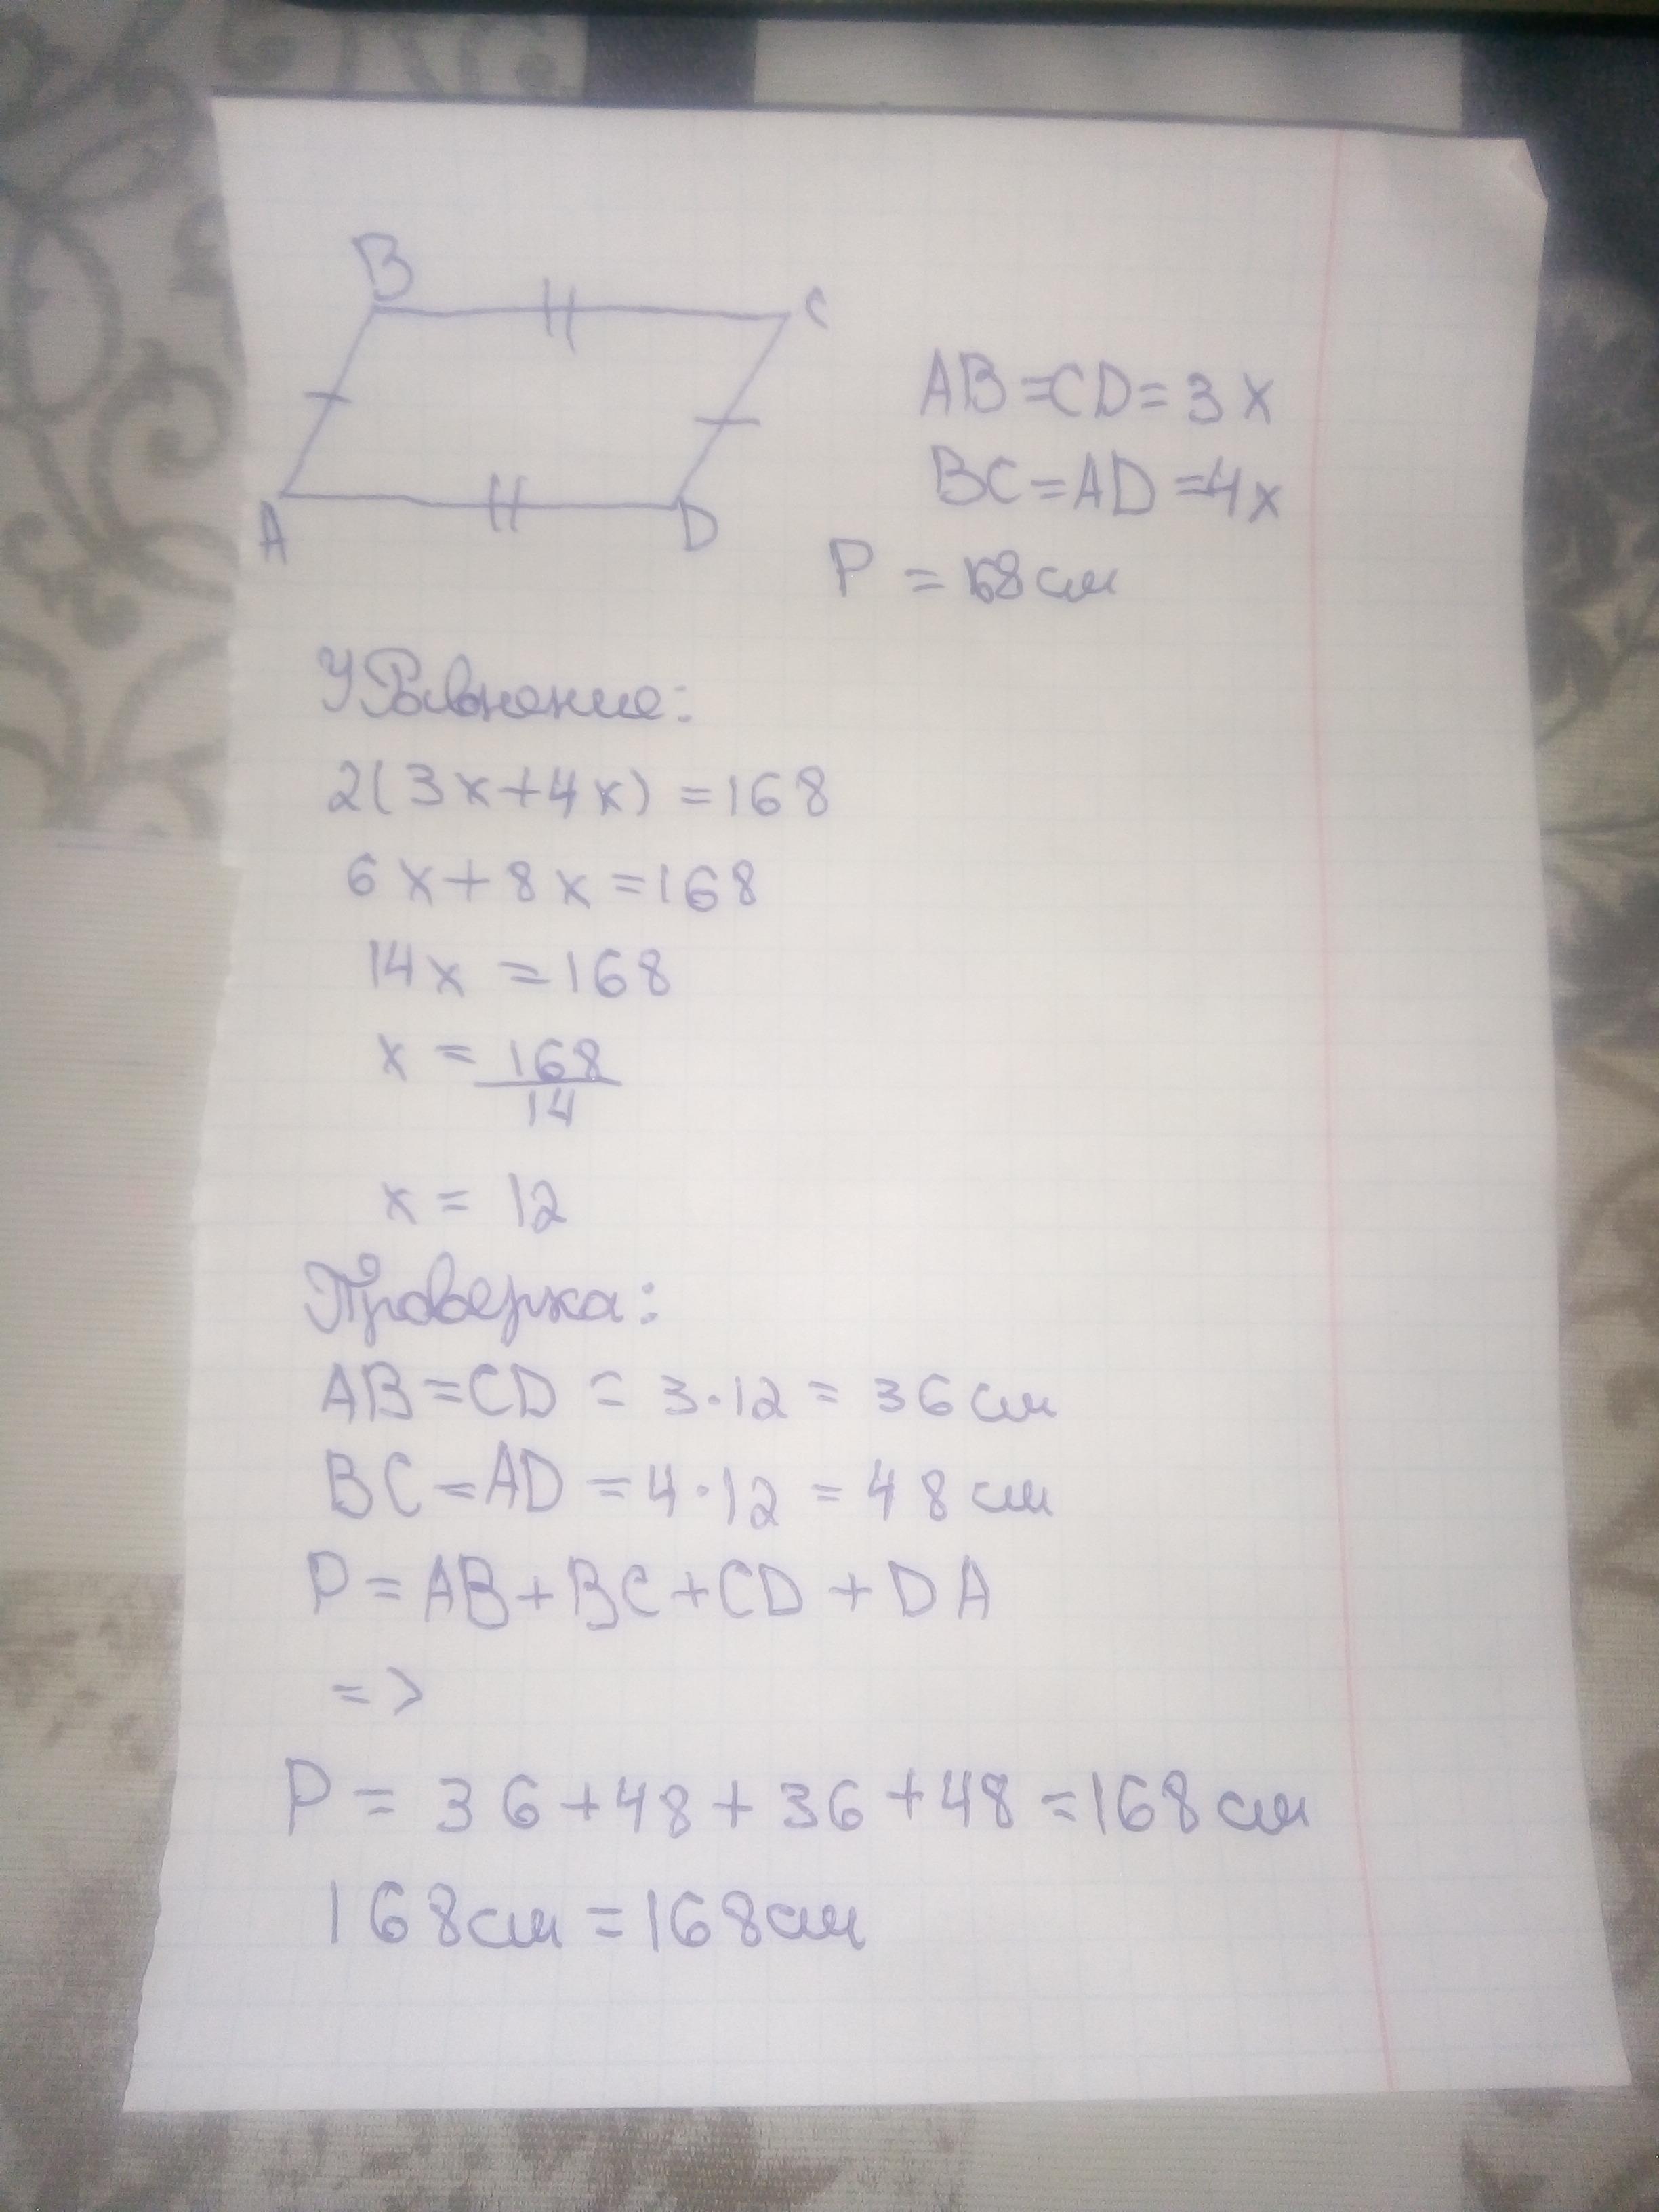 B
C
A
D
AB=CD=3x
BC=AD=4x
P = 168см
Уравнение:
2(3x+4x)=168
6x+8x=168
14x=168
x = 168/14
x = 12
Проверка:
AB=CD = 3·12 = 36см
BC=AD = 4·12 = 48см
P = AB+BC+CD+DA
=>
P = 36+48+36+48=168см
168см=168см